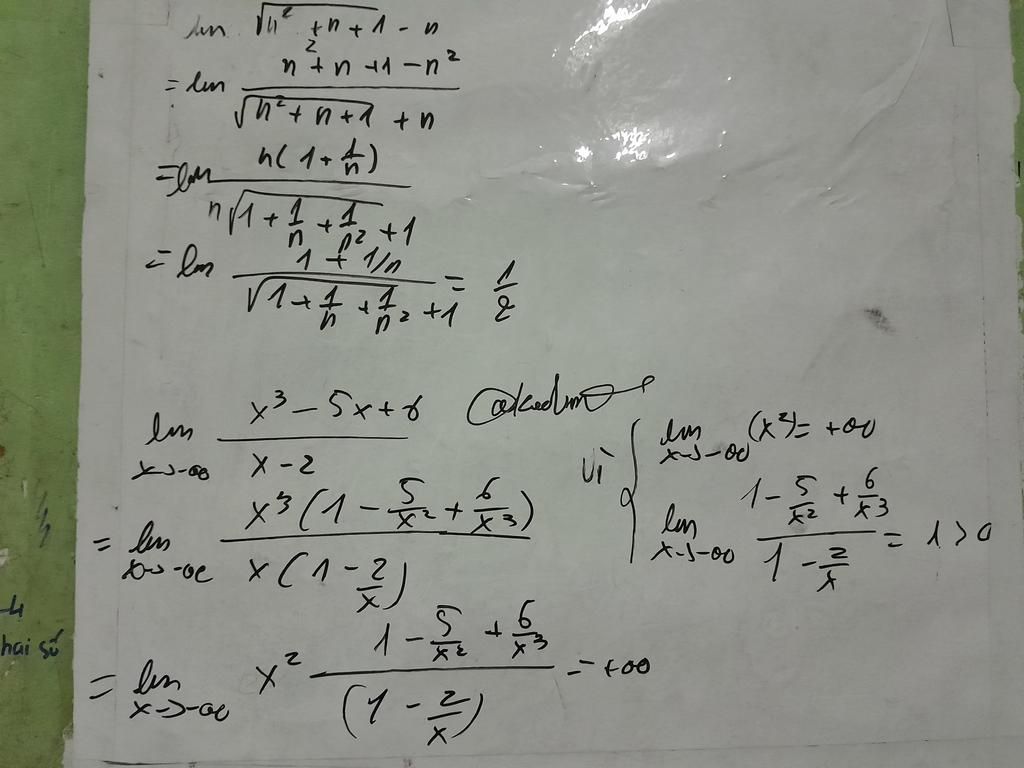 lim √(n² + n + 1) - n
= lim (n² + n + 1 - n²) / (√(n² + n + 1) + n)
= lim n(1 + 1/n) / (n√(1 + 1/n + 1/n²) + 1)
= lim (1 + 1/n) / (√(1 + 1/n + 1/n²) + 1) = 1/2
lim x→-∞ (x³ - 5x + 6) / (x - 2)
= lim x→-∞ x³(1 - 5/x² + 6/x³) / x(1 - 2/x)
= lim x→-∞ x² (1 - 5/x² + 6/x³) / (1 - 2/x) = +∞
vì { lim x→-∞ (x²) = +∞
lim x→-∞ (1 - 5/x² + 6/x³) / (1 - 2/x) = 1 > 0
-4
hai số